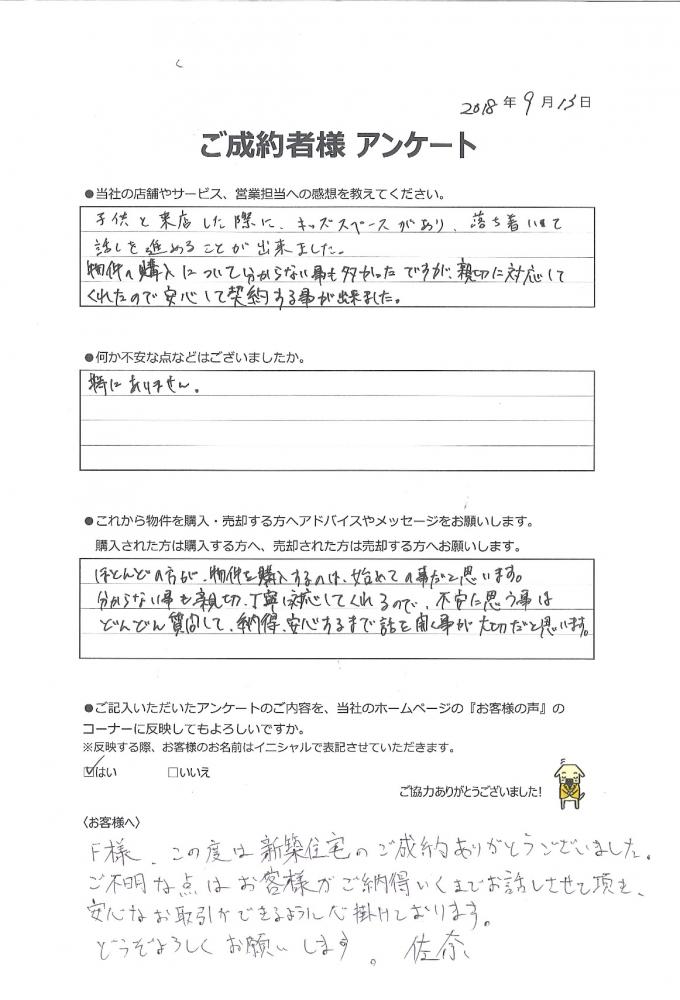 2018年9月13日
ご成約者様 アンケート
●当社の店舗やサービス、営業担当への感想を教えてください。
子供と来店した際に、キッズスペースがあり、落ち着いて
話しを進めることが出来ました。
物件の購入について分からない事も多かったですが、親切に対応して
くれたので安心して契約する事が出来ました。
●何か不安な点などはございましたか。
特にありません。
●これから物件を購入・売却する方へアドバイスやメッセージをお願いします。
購入された方は購入する方へ、売却された方は売却する方へお願いします。
ほとんどの方が、物件を購入するのは、始めての事だと思います。
分からない事も親切、丁寧に対応してくれるので、不安に思う事は
どんどん質問して、納得、安心するまで話を聞く事が大切だと思います。
●ご記入いただいたアンケートのご内容を、当社のホームページの『お客様の声』の
コーナーに反映してもよろしいですか。
※反映する際、お客様のお名前はイニシャルで表記させていただきます。
☑はい □いいえ
ご協力ありがとうございました!
〈お客様へ〉
F様、この度は新築住宅のご成約ありがとうございました。
ご不明な点はお客様がご納得いくまでお話しさせて頂き、
安心なお取引ができるように心掛けております。
どうぞよろしくお願いします。 佐奈